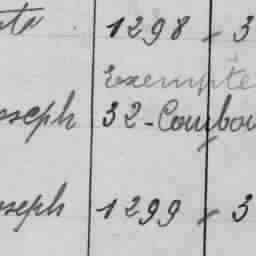 1298 - 3
Exempte
oseph 32 - Combou
oseph 1299 - 3